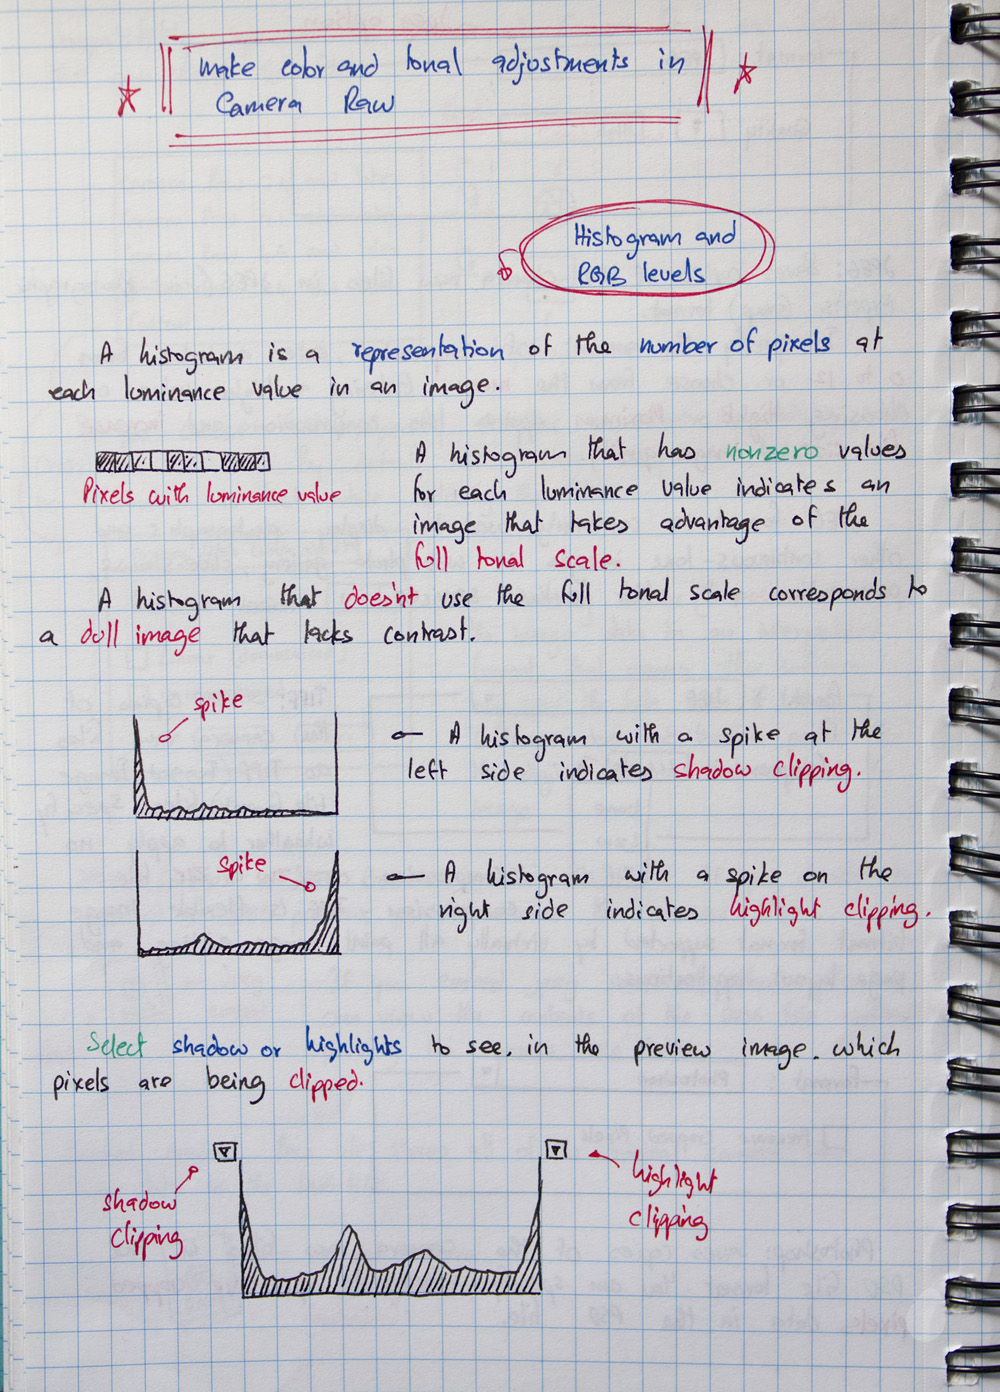 make color and tonal adjustments in
Camera Raw
Histogram and
RGB levels
A histogram is a representation of the number of pixels at
each luminance value in an image.
Pixels with luminance value
A histogram that has nonzero values
for each luminance value indicates an
image that takes advantage of the
full tonal scale.
A histogram that doesn't use the full tonal scale corresponds to
a dull image that lacks contrast.
spike
A histogram with a spike at the
left side indicates shadow clipping.
spike
A histogram with a spike on the
right side indicates highlight clipping.
Select shadow or highlights to see, in the preview image, which
pixels are being clipped.
shadow
clipping
highlight
clipping